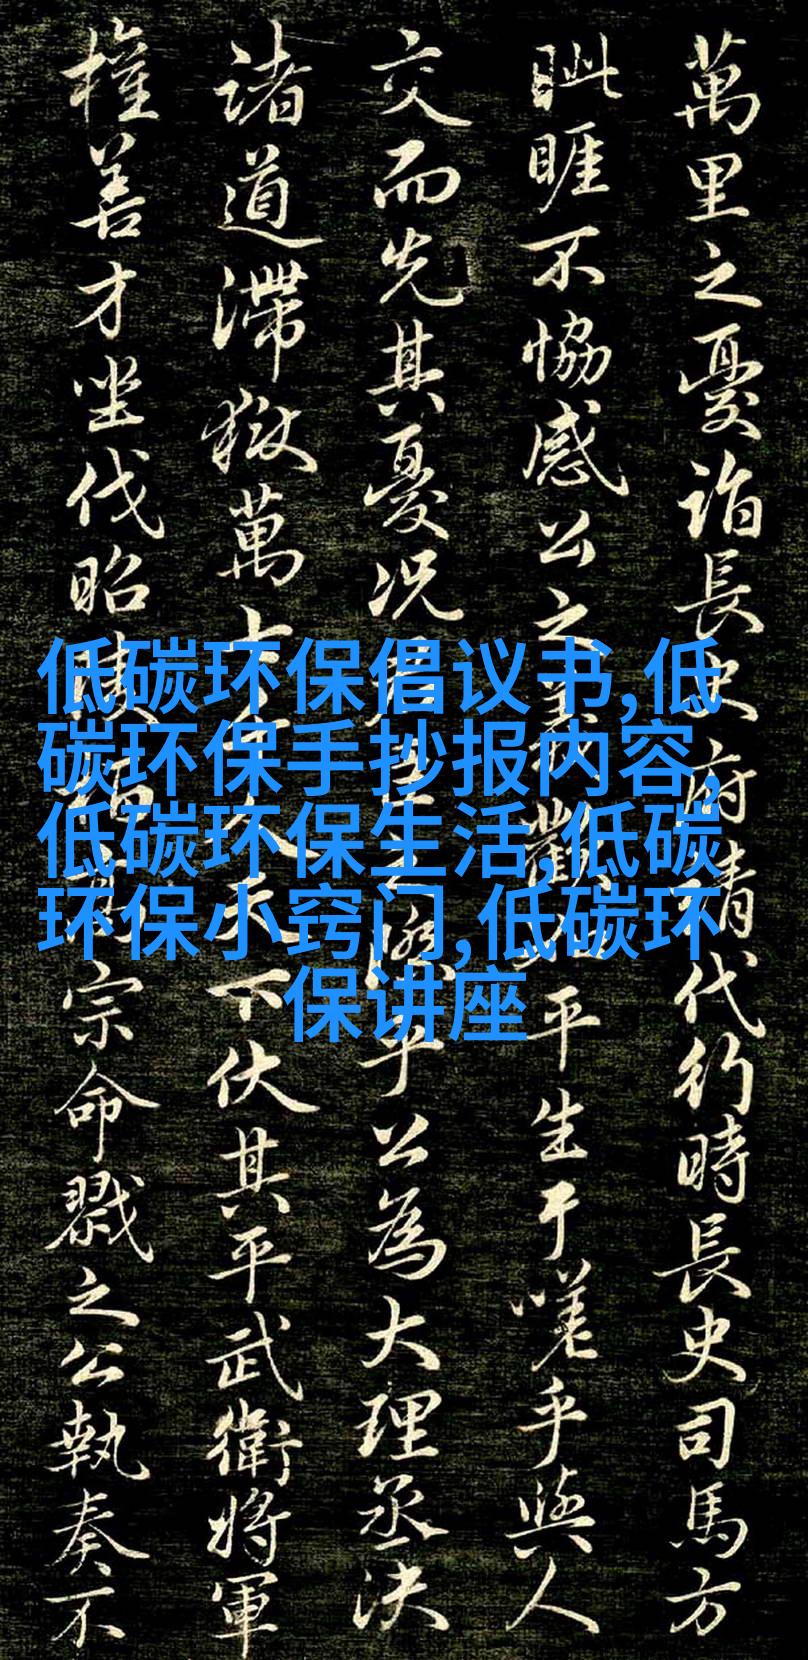 萬里之憂詣長史府請代行時長史司馬方
眦睚不協感公之義歡如平生于嗟乎與人
交而先其憂況君臣之際乎公為大理丞決
諸道滯獄萬七千人天下伏其平武衛將軍
權善才坐伐昭陵栢高宗命戮之公執奏不
低碳环保倡议书,低
碳环保手抄报内容,
低碳环保生活,低碳
环保小窍门,低碳环
保讲座